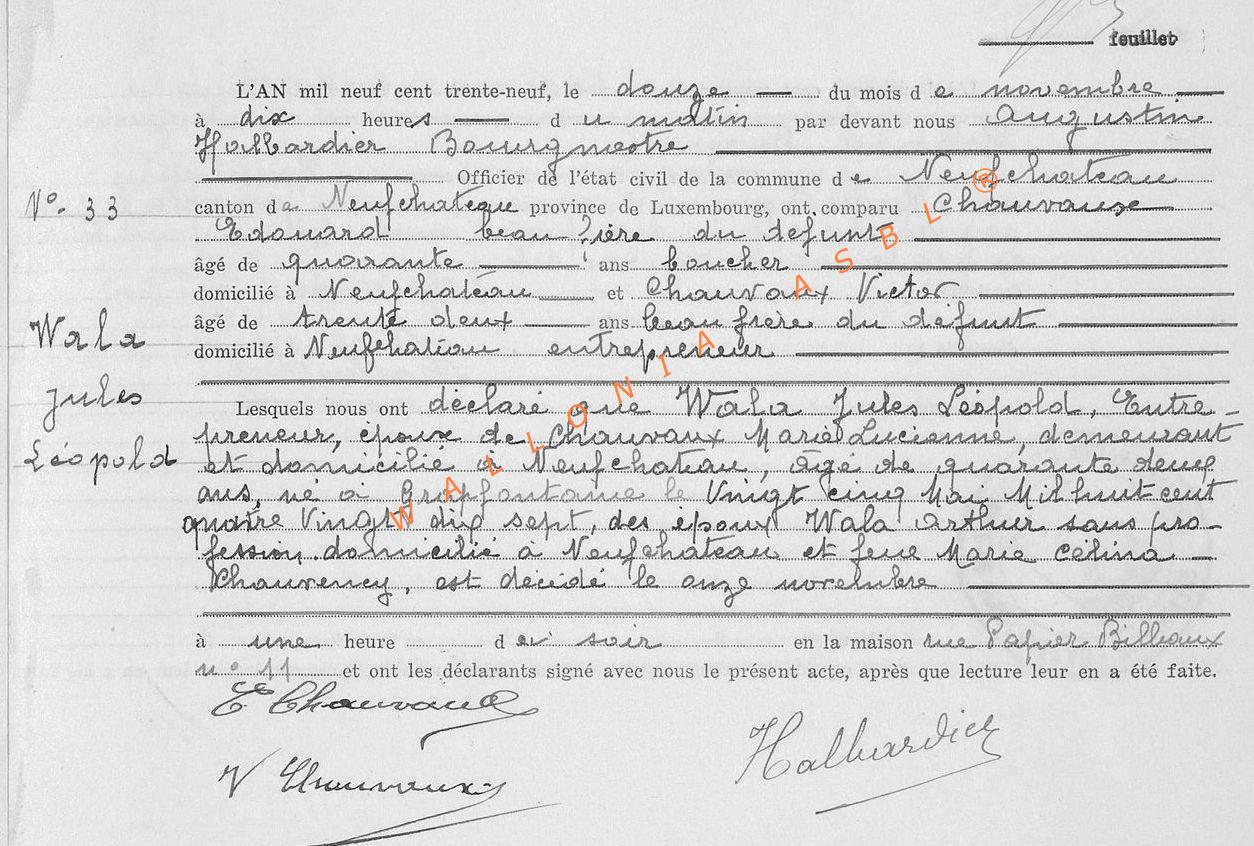 feuillet
L'AN mil neuf cent trente-neuf, le douze du mois de novembre
à dix heures du matin par devant nous Augustin
Halbardier Bourgmestre
Officier de l'état civil de la commune de Neufchateau
N°. 33
canton de Neufchateau province de Luxembourg, ont comparu Chauvaux
Edouard beau frère du defunt
âgé de quarante ans boucher
domicilié à Neufchateau et Chauvaux Victor
âgé de trente deux ans beau frère du défunt
domicilié à Neufchateau entrepreneur
Wala
Jules
Léopold
Lesquels nous ont déclaré que Wala Jules Léopold, Entre-
preneur, époux de Chauvaux Marie Lucienne, demeurant
et domicilié à Neufchateau, âgé de quarante deux
ans, né à Grapfontaine le Vingt cinq Mai Mil huit cent
quatre Vingt dix sept, des époux Wala Arthur sans pro-
fession domicilié à Neufchateau et feue Marie Célina
Chauvency, est décédé le onze novembre
à une heure du soir en la maison rue Papier Billaux
n° 11 et ont les déclarants signé avec nous le présent acte, après que lecture leur en a été faite.
E Chauvaux
V Chauvaux
Halbardier
WALLONIA ASBL ®